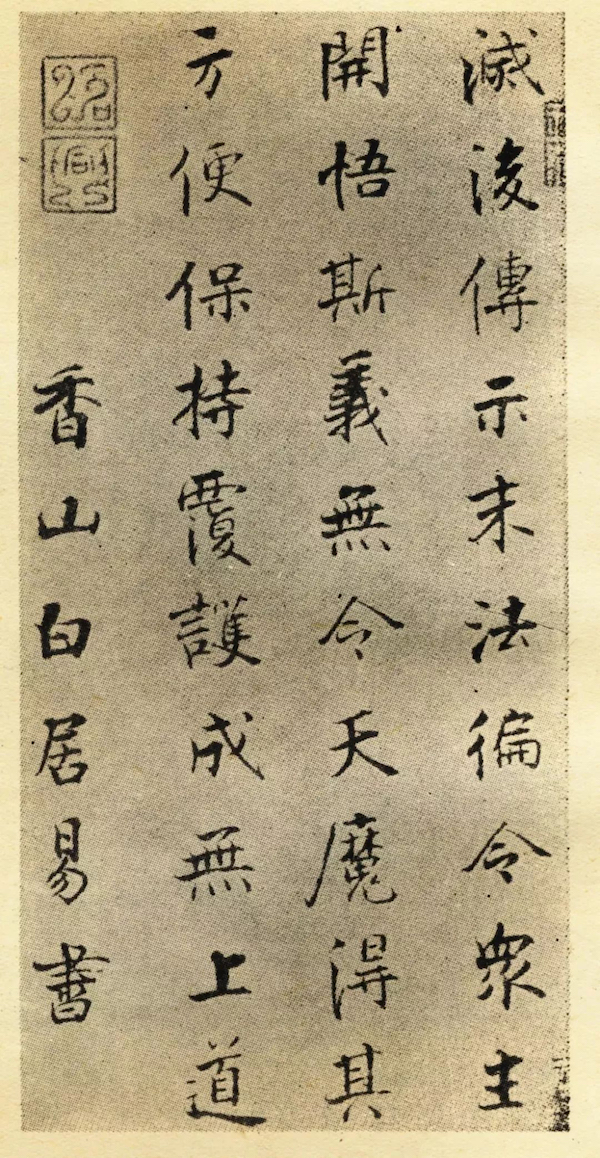 滅後傳示末法徧令衆生
開悟斯義無令天魔得其
方便保持覆護成無上道
香山白居易書